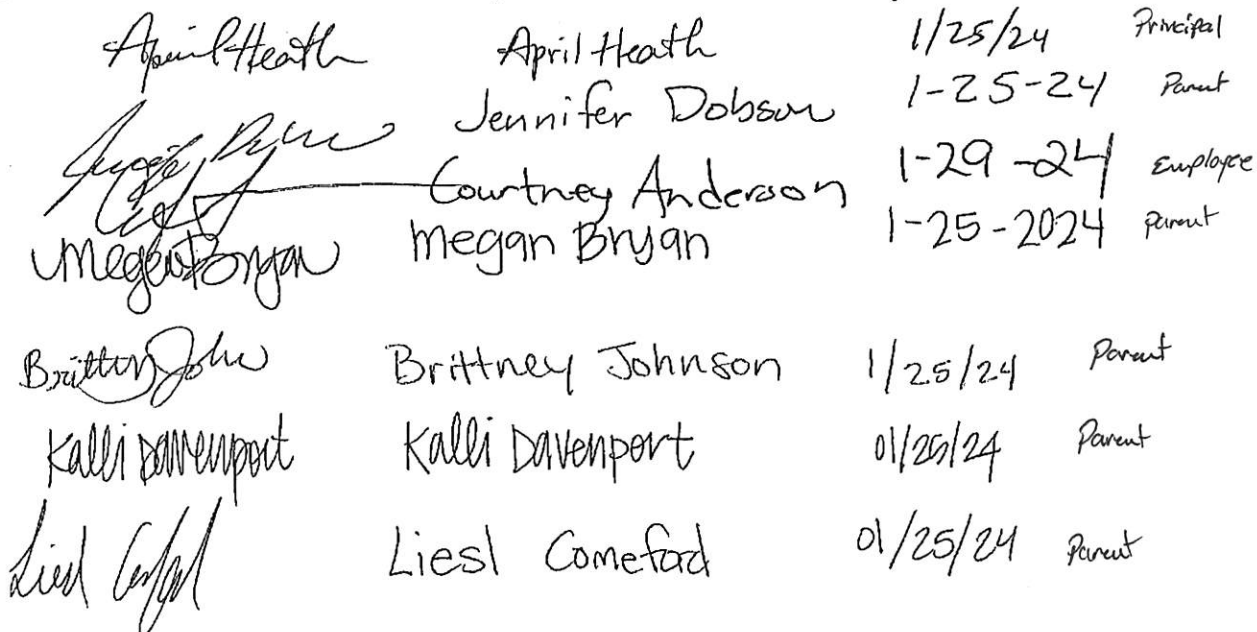 April Heath April Heath 1/25/24 Principal
Jennifer Dobson 1-25-24 Parent
Courtney Anderson 1-29-24 Employee
Megan Bryan Megan Bryan 1-25-2024 parent
Brittney Johnson 1/25/24 Parent
Kalli Davenport Kalli Davenport 01/25/24 Parent
Liesl Liesl Comeford 01/25/24 Parent